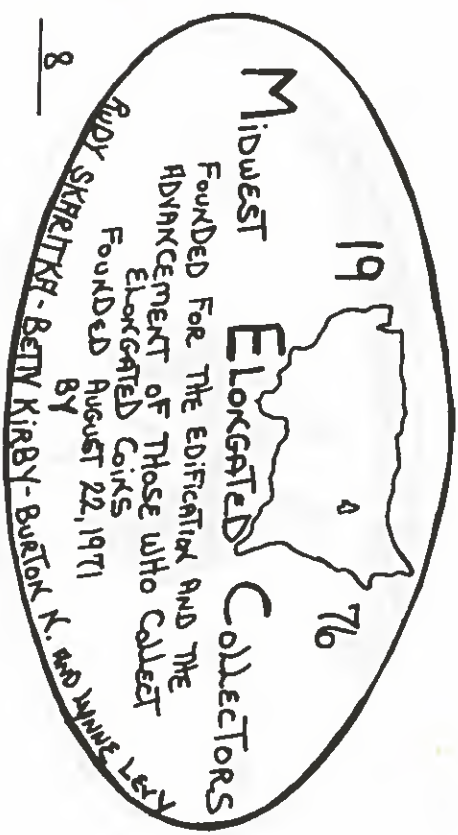 19 76
MIDWEST ELONGATED COLLECTORS
FOUNDED FOR THE EDIFICATION AND THE
ADVANCEMENT OF THOSE WHO COLLECT
ELONGATED COINS
FOUNDED AUGUST 22, 1971
BY
RUDY SKARITKA-BETTY KIRBY-BURTON N. AND LYNNE LEVY
8